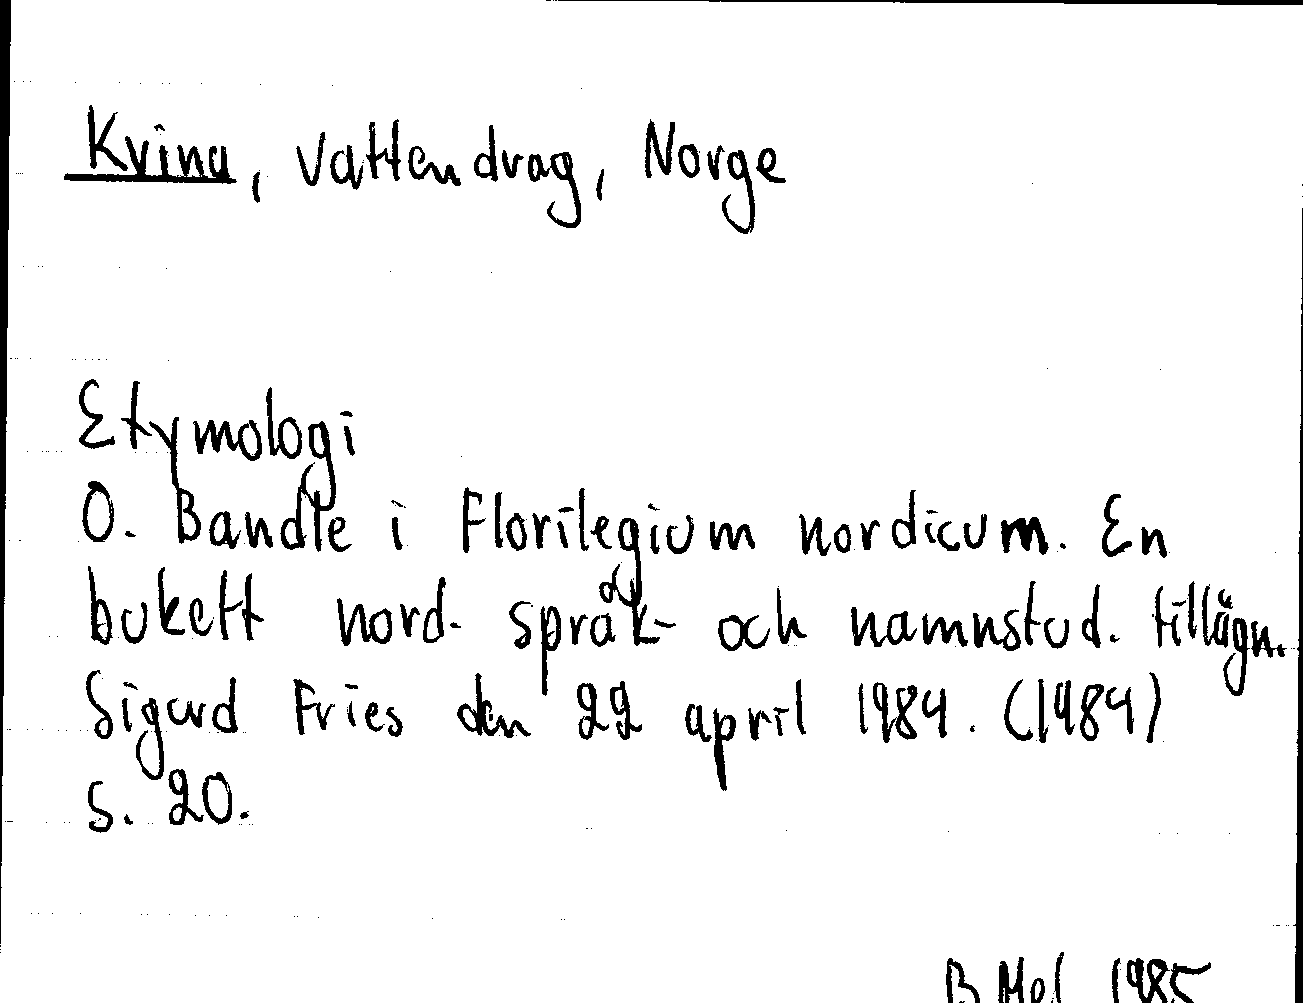 Kvina, vattendrag, Norge
Etymologi
O. Bandle i Florilegium nordicum. En
bukett nord. språk- och namnstud. tillägn.
Sigurd Fries den 22 april 1984. (1984)
s. 20.
B Mel 1985